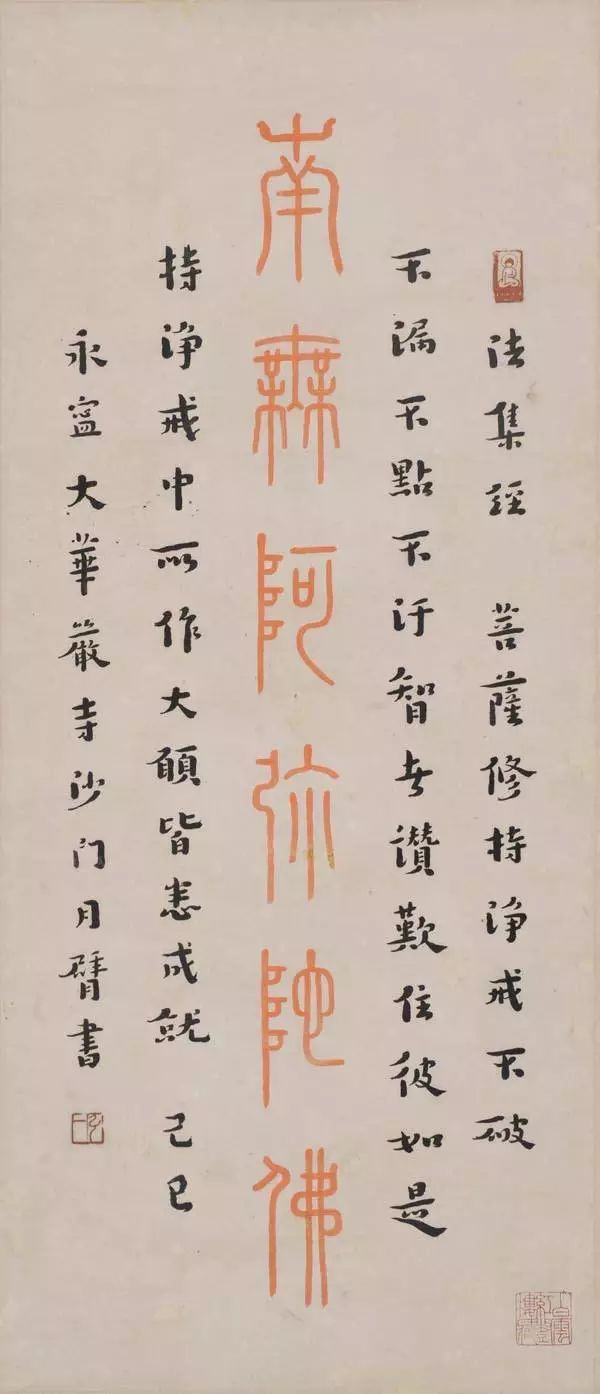 法集經 菩薩修持淨戒不破
不漏不點不汙智者讚歎住彼如是
南無阿弥陀佛
持淨戒中所作大願皆悉成就 己巳
永寧大華嚴寺沙门月臂書